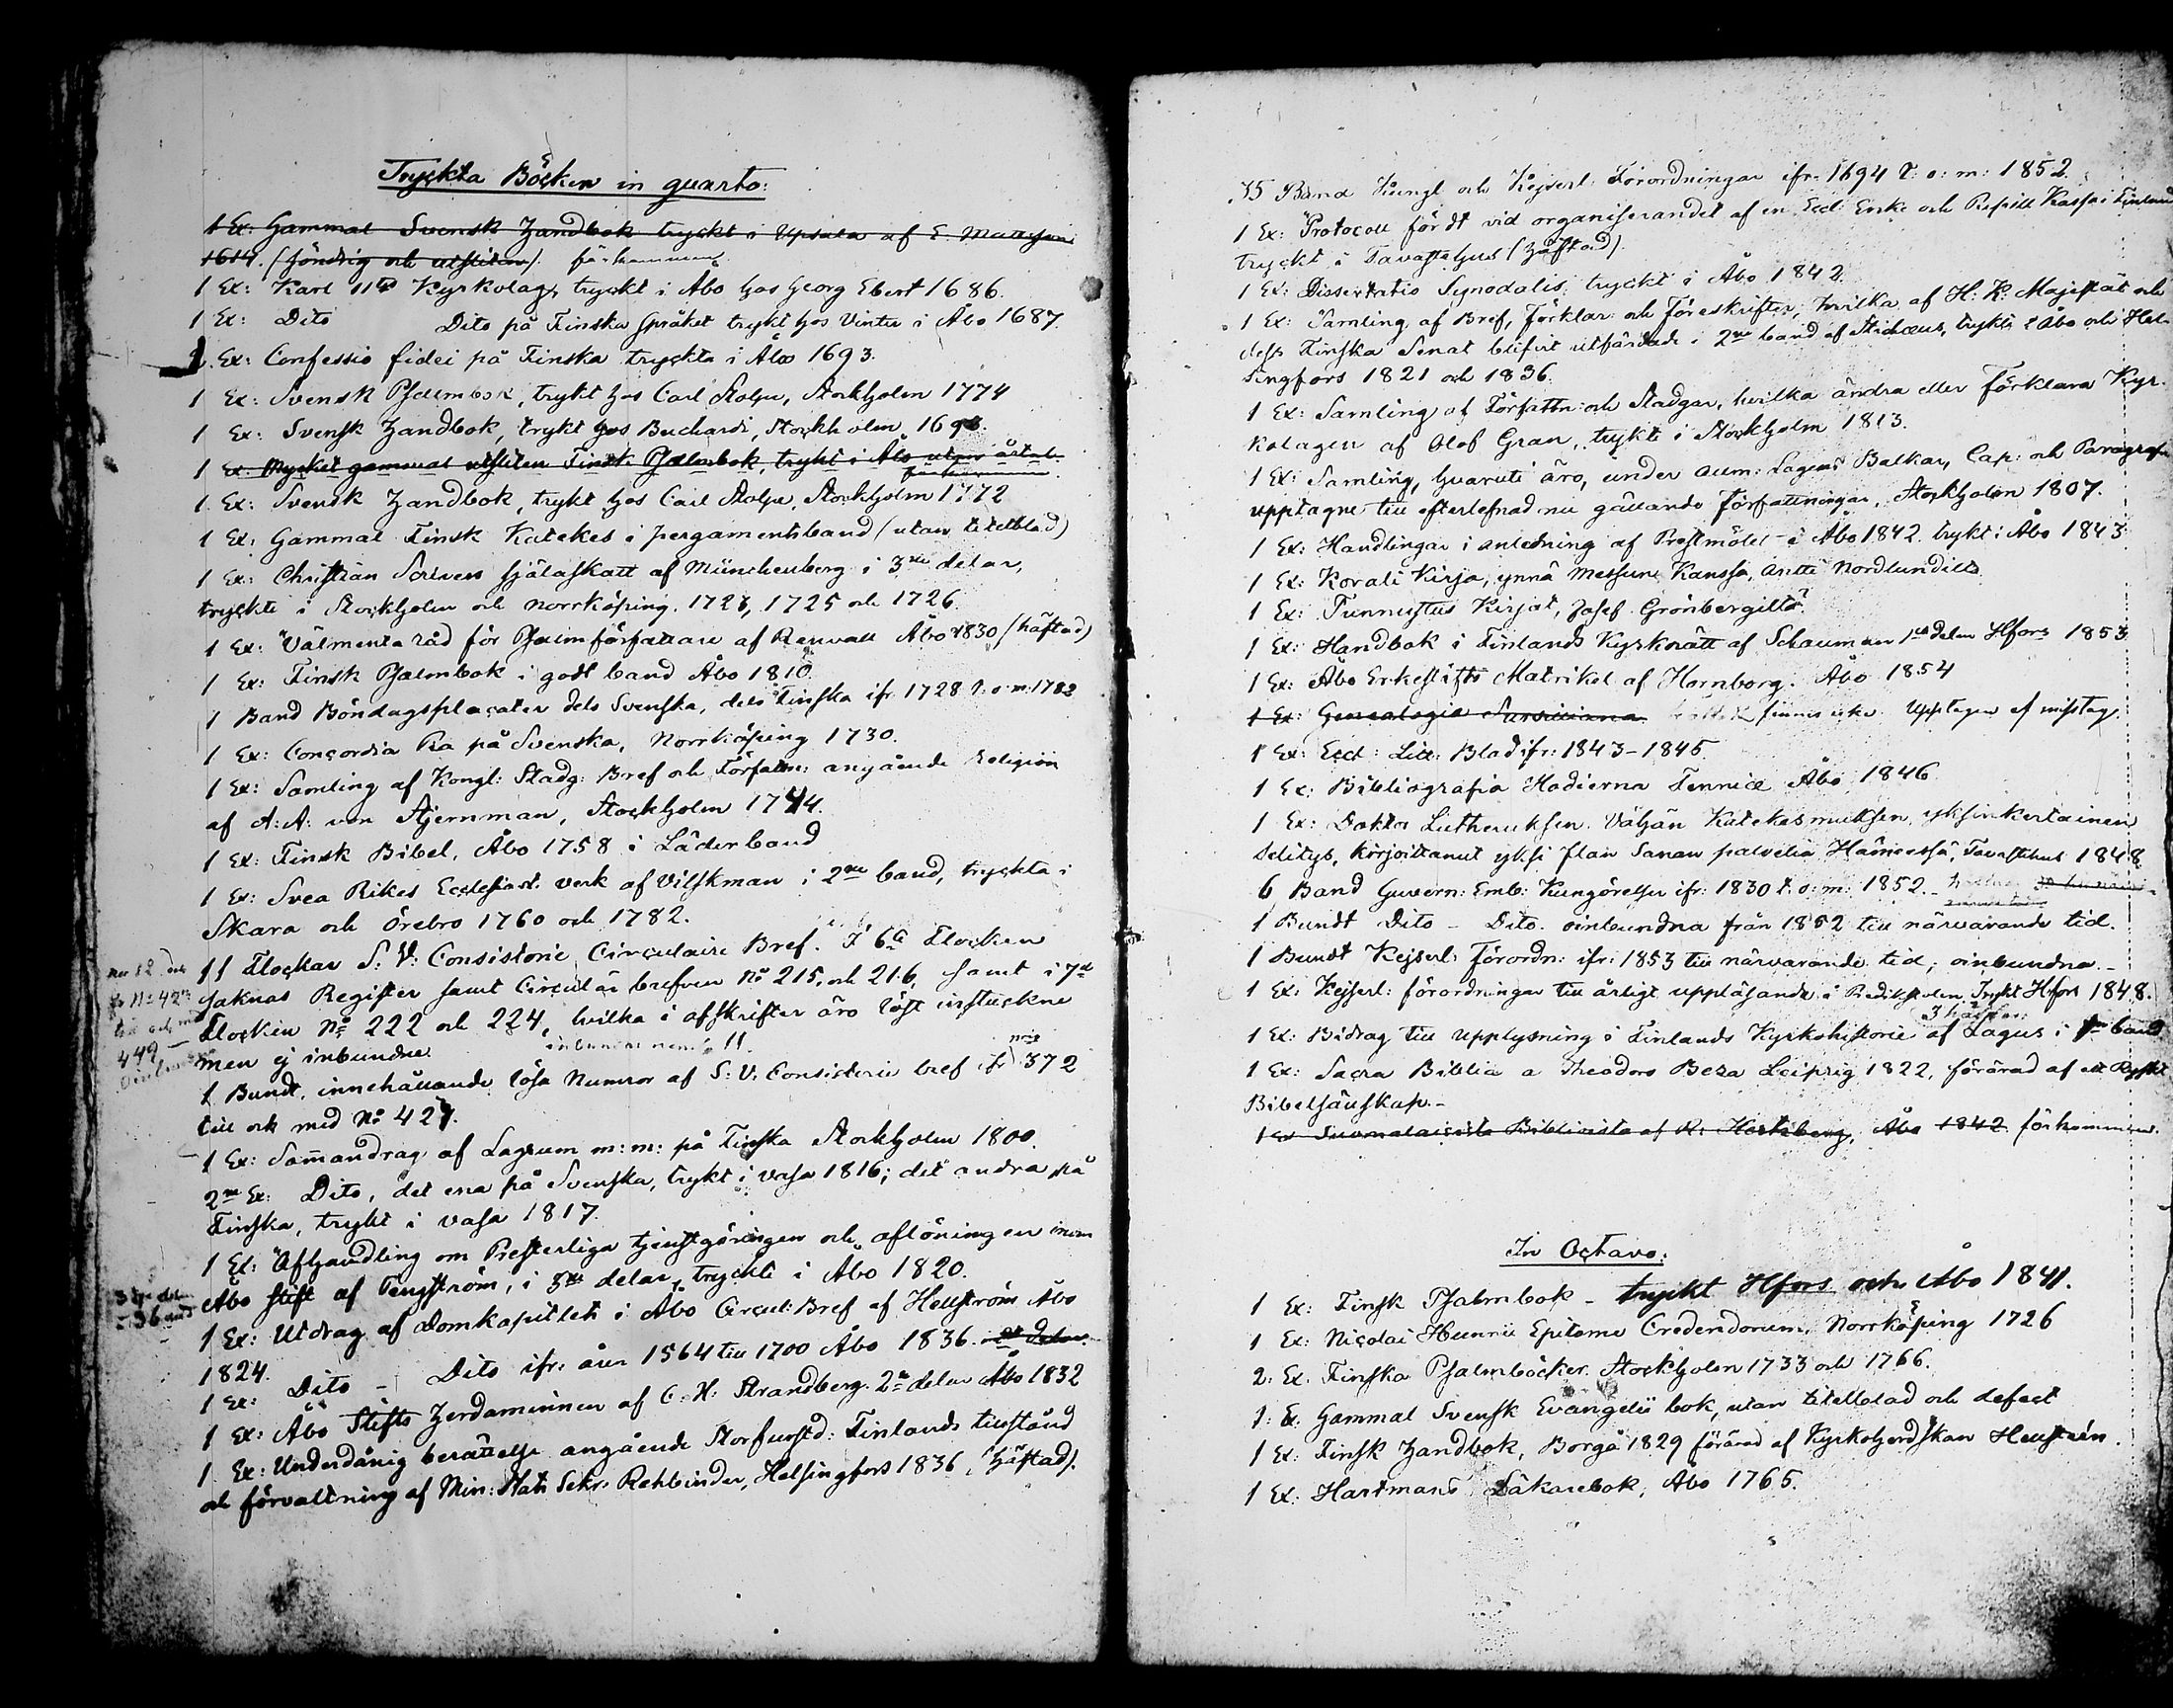 Tryckta Böcker in quarto:
1 Ex: Gammal Svensk Handbok tryckt i Upsala af E. Mattsson
1614. (söndrig och utsliten). förkommen
1 Ex: Karl 11te Kyrkolag, tryckt i Åbo hos Georg Ebert 1686.
1 Ex: Dito Dito på Finska språket trykt hos Vinter i Åbo 1687.
2. Ex: Confessio fidei på Finska tryckta i Åbo 1693.
1 Ex: Svensk Psalmbok, trykt hos Carl Stolpe, Stockholm 1774
1 Ex: Svensk Handbok, trykt hos Buchardi, Stockholm 1693.
1 Ex: Mycket gammal utsliten Finsk Psalmbok, trykt i Åbo utan årtal.
förkommen
1 Ex: Svensk Handbok, trykt hos Carl Stolpe, Stockholm 1772
1 Ex: Gammal Finsk Katekes i pergamentsband (utan titelblad)
1 Ex: Christian Scrivers Själaskatt af Münchenberg i 3ne delar,
tryckte i Stockholm och Norrköping. 1723, 1725 och 1726
1 Ex: Välmenta råd för Psalmförfattare af Renvall Åbo 1830 (häftad)
1 Ex: Finsk Psalmbok i godt band Åbo 1810.
1 Band Böndagsplacater dels Svenska, dels Finska ifr. 1728 t. o. m. 1782
1 Ex: Concordia Pia på Svenska, Norrköping 1730.
1 Ex: Samling af Kongl: Stadg: Bref och Författn: angående Religion
af A: A: von Stjernman, Stockholm 1744.
1 Ex: Finsk Bibel, Åbo 1758 i Läderband
1 Ex: Svea Rikes Ecclesiast. verk af Vilskman i 2ne band, tryckta i
Skara och Örebro 1760 och 1782.
11 Flockar S: V: Consistorie Circulaire Bref. I 6te Flocken
saknas Register samt Circulärbrefven No 215, och 216, samt i 7de
Flocken No 222 och 224, hvilka i afskrifter äro löst instuckne
men ej inbundne.
1 Bundt, innehållande lösa Numror af S: V: Consistorie bref ifr 372
till och med No 427.
1 Ex: Samandrag af Lagrum m: m: på Finska Stockholm 1800.
2ne Ex: Dito, det ena på Svenska, trykt i Vasa 1816; det andra på
Finska, trykt i Vasa 1817.
1 Ex: Afhandling om Presterliga tjenstgöringen och aflöningen inom
Åbo stift af Tengström, i 3ne delar, tryckte i Åbo 1820.
1 Ex: Utdrag af Domkapitlets i Åbo Circul: Bref af Hellström Åbo
1824.
1 Ex: Dito - Dito ifr: åren 1564 till 1700 Åbo 1836.
1 Ex: Åbo Stifts Herdaminnen af C. H: Strandberg. 2ne delar Åbo 1832
1 Ex: Underdånig berättelse angående Storfurstd: Finlands tillstånd
och förvaltning af Min: Stats Sekr. Rehbinder, Helsingfors 1836, (häftad).
35 Band Kungl och Kejserl: Förordningar ifr. 1694 t: o: m: 1852.
1 Ex: Protocoll fördt vid organiserandet af en Eccl: Enke och Pupill Kassa i Finland
tryckt i Tavastehus (häftad).
1 Ex: Dissertatio Synodalis, tryckt i Åbo 1842.
1 Ex: Samling af Bref, Förklar: och Föreskrifter, hvilka af H: K: Majestät och
dess Finska Senat blifvit utfärdade i 2ne band af Stichæus, trykte i Åbo och Hel-
singfors 1821 och 1836.
1 Ex: Samling af Författn: och Stadgar, hvilka ändra eller förklara Kyr-
kolagen af Olof Gran, trykte i Stockholm 1813.
1 Ex: Samling, hvaruti äro, under allm: Lagens Balkar, Cap: och Paragrafer
upptagne till efterlefnad nu gällande författningar, Stockholm 1807.
1 Ex: Handlingar i anledning af Prestmötet i Åbo 1842. trykt i Åbo 1843.
1 Ex: Korali Kirja, ynnä Messun Kanssa, Antti Nordlundilta
1 Ex: Tunnustus Kirjat, Josef Grönbergiltä.
1 Ex: Handbok i Finlands Kyrkorätt af Schauman 1sta delen Hfors 1853
1 Ex: Åbo Erkestifts Matrikel af Hornborg. Åbo 1854
1 Ex: Genealogia Sursilliana finnes icke. Upptagen af misstag.
1 Ex: Eccl: Litt: Blad ifr: 1843-1845
1 Ex: Bibliografia Hodierna Fennica Åbo 1846
1 Ex: Doktor Lutheruksen Vähän Katekesmuksen yksinkertainen
Selitys, kirjoittanut yksi Ilan Sanan palvelia Hämeessä, Tavastehus 1848
6 Band Guvern: Emb: Kungörelser ifr: 1830 t. o: m: 1852.
1 Bundt Dito - Dito. oinbundna från 1852 till närvarande tid.
1 Bundt Kejserl: Förordn: ifr: 1853 till närvarande tid; oinbundna.
1 Ex: Kejserl: förordningar till årligt uppläsande i Predikstolen Trykt Hfors 1848.
1 Ex: Bidrag till upplysning i Finlands Kyrkohistorie af Lagus i 3 häften band
1 Ex: Sacra Biblia a Theodoro Beza Leipzig 1822, förärad af ett Ryskt
Bibelsällskap.
1 Ex Suomalaisista Biblioista af R: Hertzberg, Åbo 1842 förkommen.
In Octavo:
1 Ex: Finsk Psalmbok - tryckt Hfors och Åbo 1841.
1 Ex: Nicolai Hunnii Epitome Credendorum, Norrköping 1726
2: Ex. Finska Psalmböcker. Stockholm 1733 och 1766.
1: Ex. Gammal Svensk Evangelii bok, utan titelblad och defect
1 Ex. Finsk Handbok, Borgå 1829 förärad af Kyrkoherdskan Hellstén.
1 Ex: Hartmans Läkarebok, Åbo 1765.